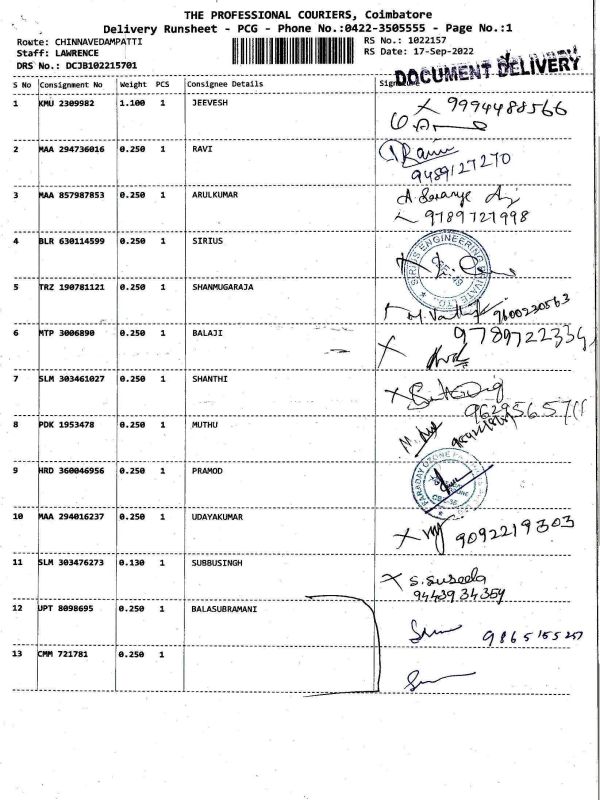 THE PROFESSIONAL COURIERS, Coimbatore
Delivery Runsheet - PCG - Phone No.:0422-3505555 - Page No.:1
Route: CHINNAVEDAMPATTI
RS No.: 1022157
Staff: LAWRENCE
RS Date: 17-Sep-2022
DRS No.: DCJB102215701
DOCUMENT DELIVERY
S No Consignment No Weight PCS Consignee Details Signature
1 KMU 2309982 1.100 1 JEEVESH X 9994488566
2 MAA 294736016 0.250 1 RAVI
9489127270
3 MAA 857987853 0.250 1 ARULKUMAR
9789727998
4 BLR 630114599 0.250 1 SIRIUS
SIRIUS ENGINEERING PRIVATE LTD.,
5 TRZ 190781121 0.250 1 SHANMUGARAJA
9600230563
6 MTP 3006890 0.250 1 BALAJI
X
7 SLM 303461027 0.250 1 SHANTHI X
8 PDK 1953478 0.250 1 MUTHU
9 HRD 360046956 0.250 1 PRAMOD
FARADAY OZONE
10 MAA 294016237 0.250 1 UDAYAKUMAR
X 9092219303
11 SLM 303476273 0.130 1 SUBBUSINGH
X S. Suseela
9443934359
12 UPT 8098695 0.250 1 BALASUBRAMANI
13 CMM 721781 0.250 1